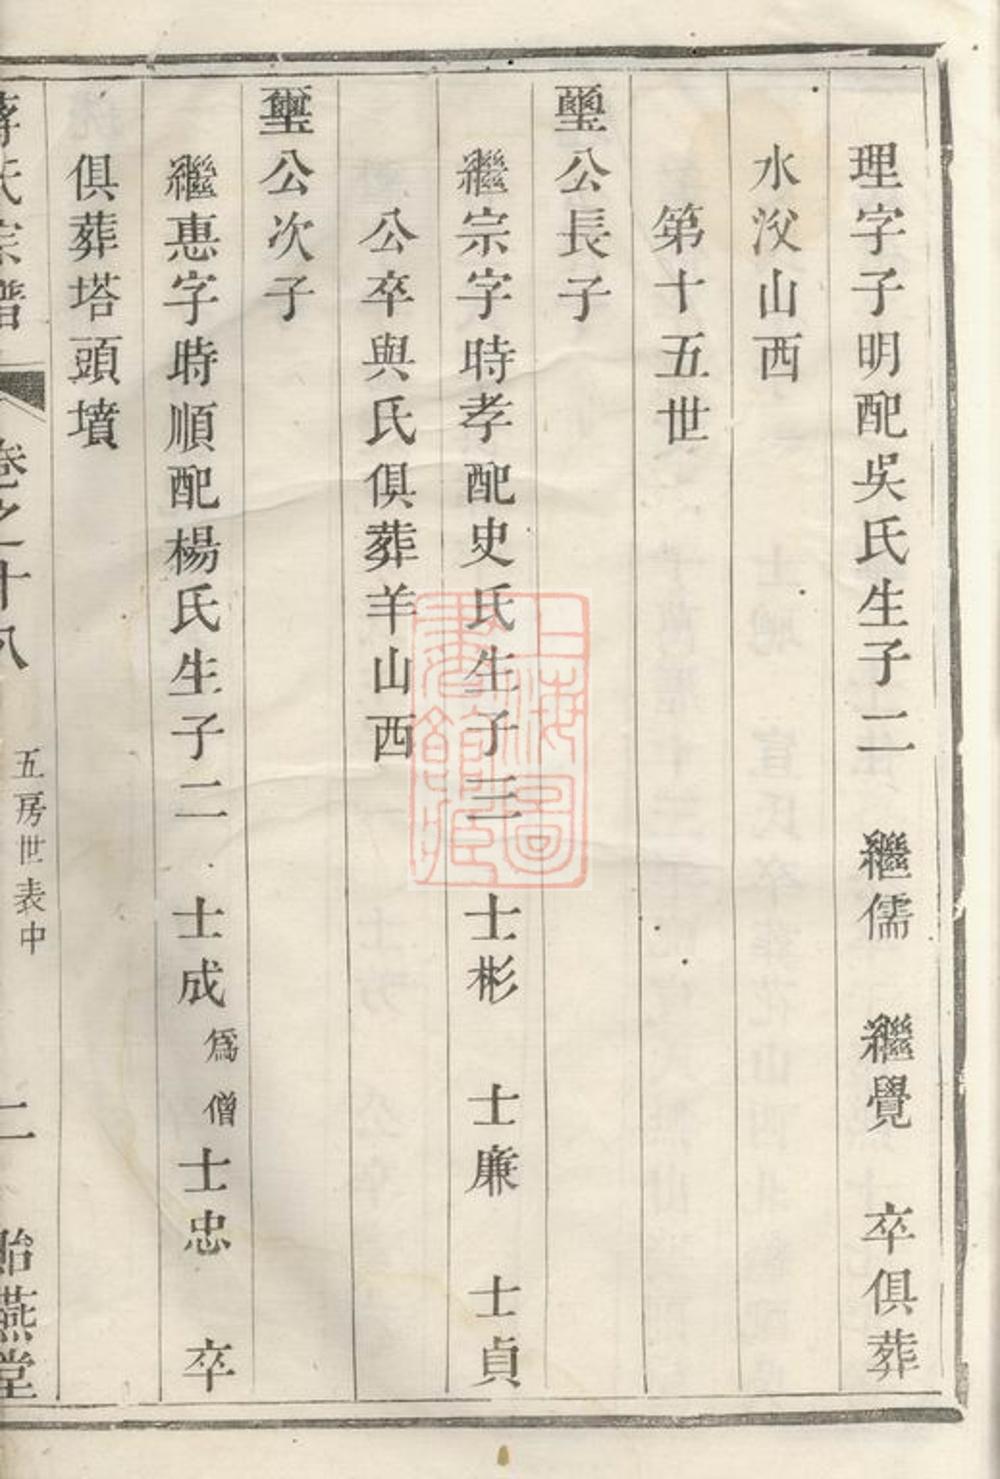 理字子明配吳氏生子二 繼儒 繼覺 卒俱葬
水汶山西
第十五世
璽公長子
繼宗字時孝配史氏生子三 士彬 士廉 士貞
公卒與氏俱葬羊山西
璽公次子
繼惠字時順配楊氏生子二 士成 為僧 士忠 卒
俱葬塔頭墳
蔣氏宗譜 卷之十八 五房世表中 二 貽燕堂
上海圖書館藏